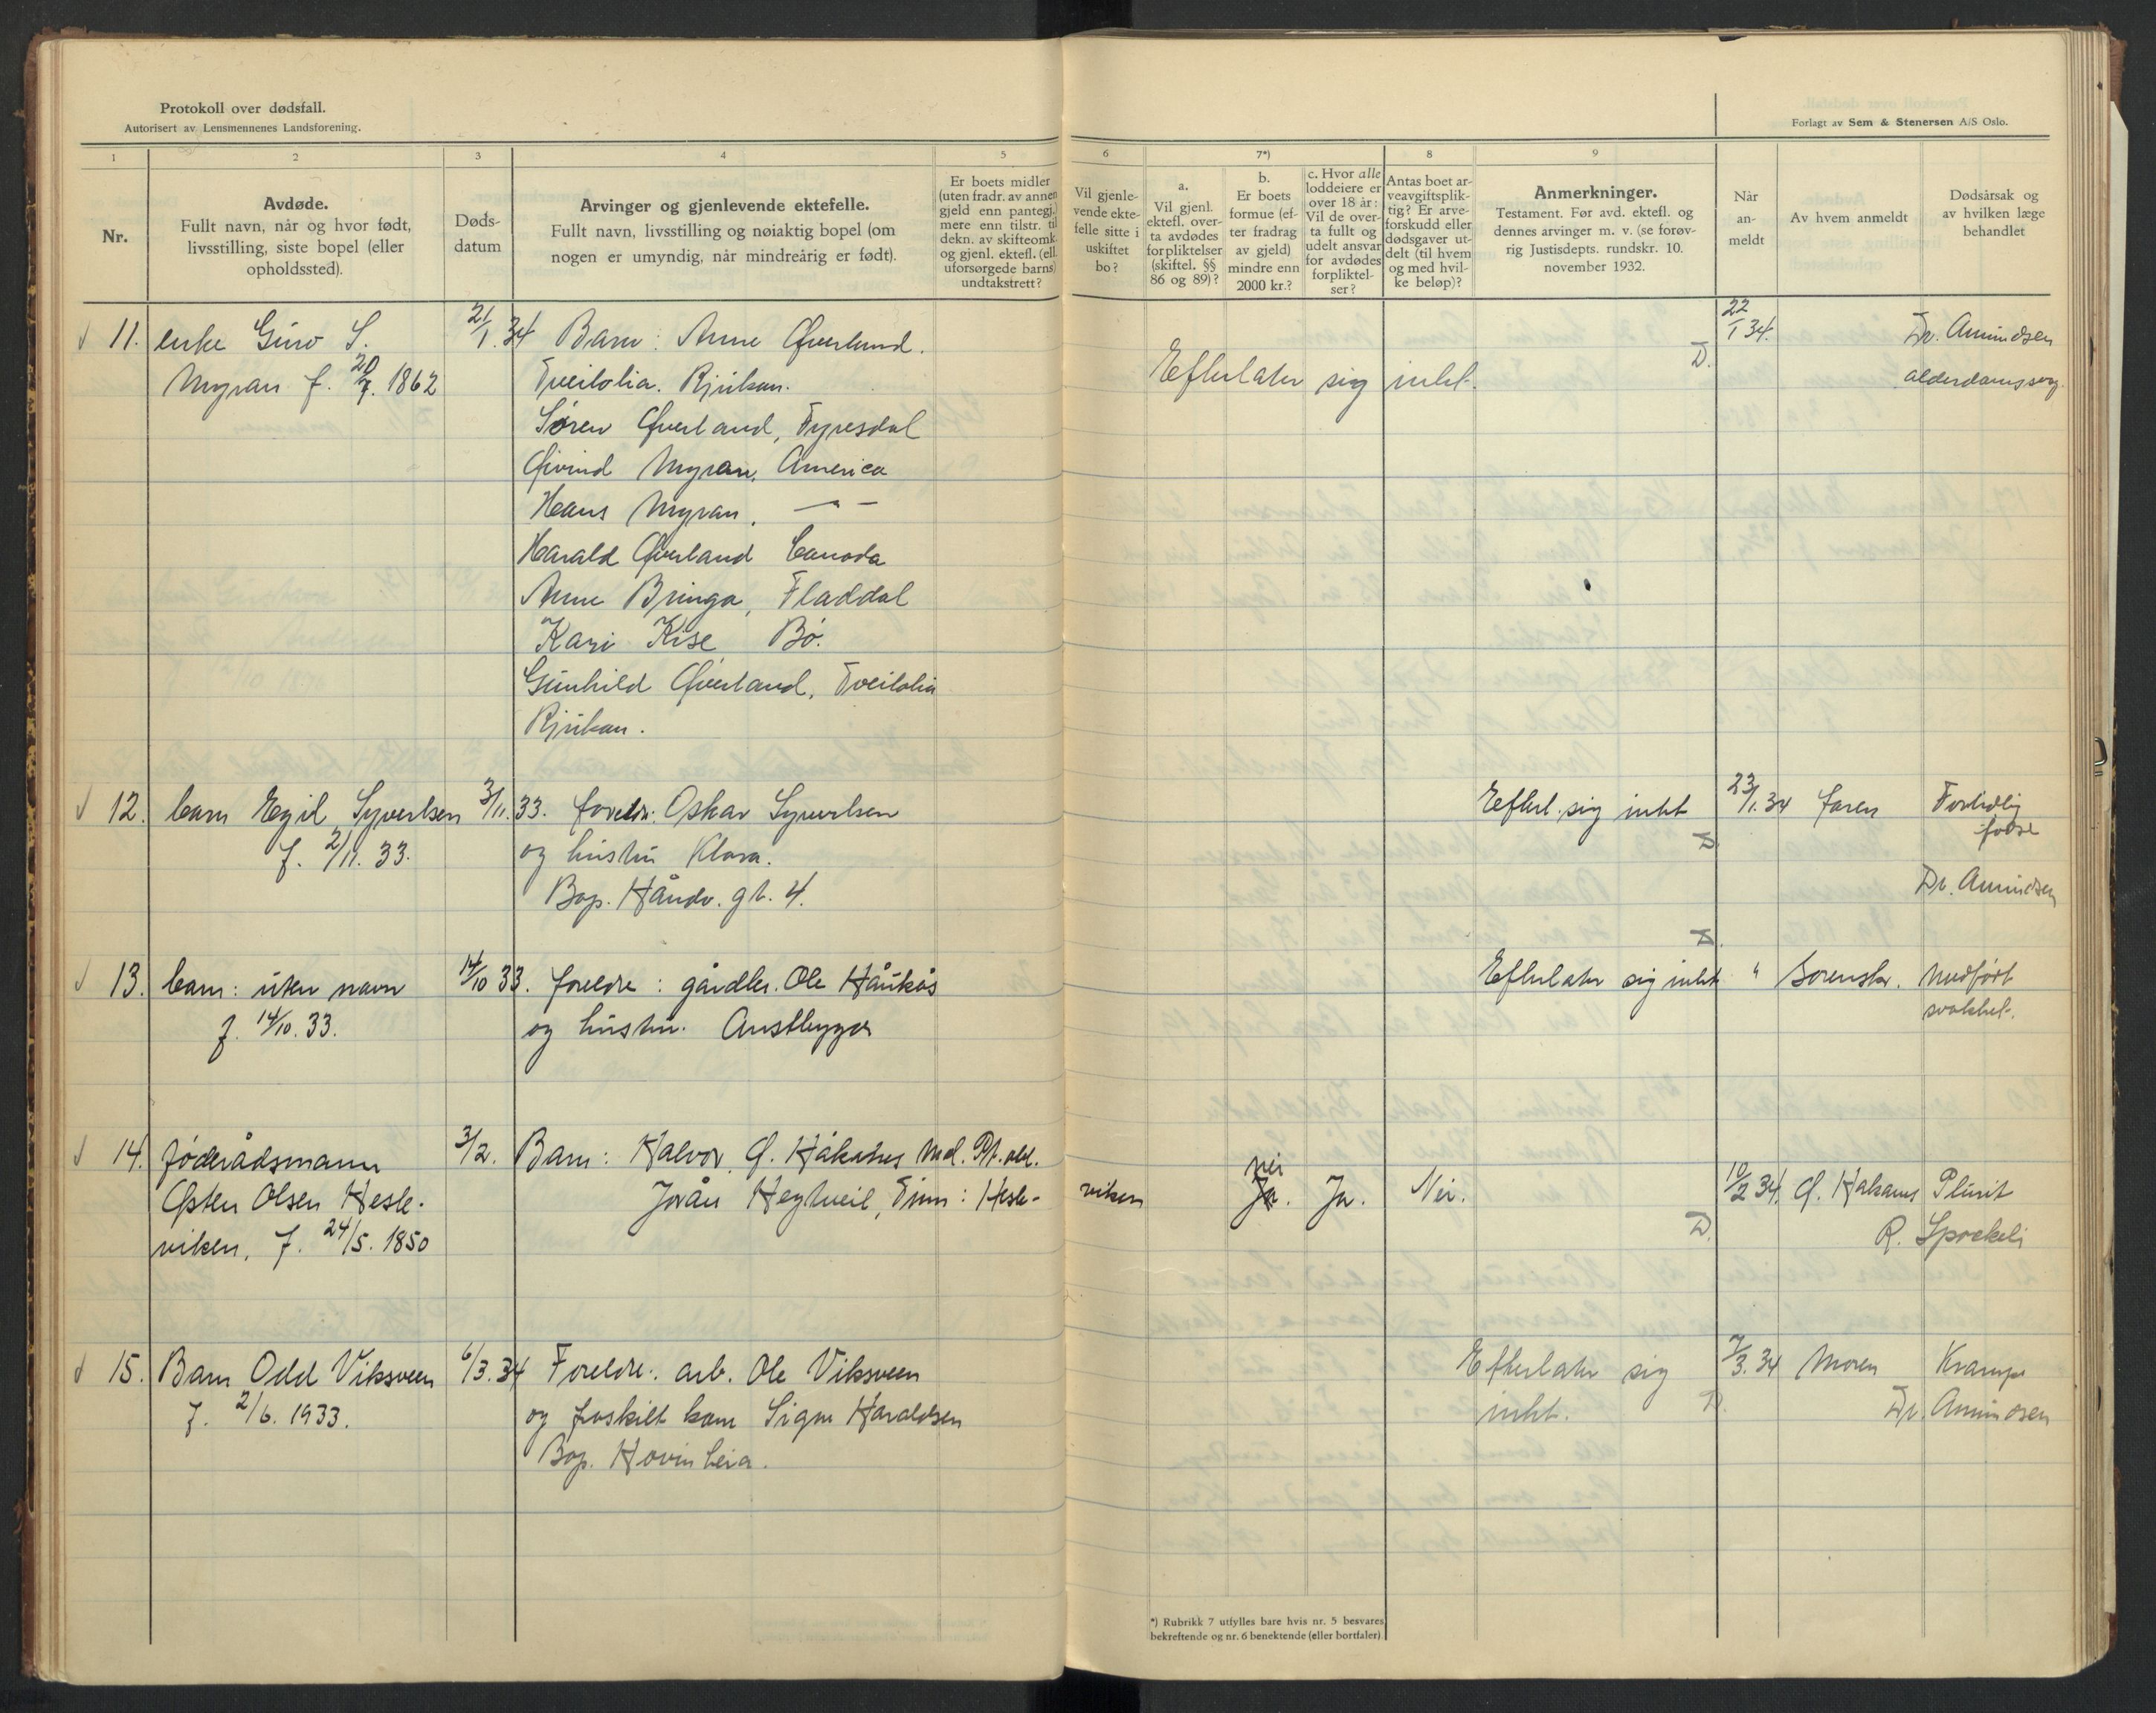 Protokoll over dødsfall.
Autorisert av Lensmennenes Landsforening.
Forlagt av Sem & Stenersen A/S Oslo.
1 2 3 4 5 6 7*) 8 9
Nr.
Avdøde.
Fullt navn, når og hvor født,
livsstilling, siste bopel (eller
opholdssted).
Døds-
datum
Arvinger og gjenlevende ektefelle.
Fullt navn, livsstilling og nøiaktig bopel (om
nogen er umyndig, når mindreårig er født).
Er boets midler
(uten fradr. av annen
gjeld enn pantegj.)
mere enn tilstr. til
dekn. av skifteomk.
og gjenl. ektefl. (ell.
uforsørgede barns)
undtakstrett?
Vil gjenle-
vende ekte-
felle sitte i
uskiftet
bo?
a.
Vil gjenl.
ektefl. over-
ta avdødes
forpliktelser
(skiftel. §§
86 og 89)?
b.
Er boets
formue (ef-
ter fradrag
av gjeld)
mindre enn
2000 kr.?
c. Hvor alle
loddeiere er
over 18 år:
Vil de over-
ta fullt og
udelt ansvar
for avdødes
forpliktel-
ser?
Antas boet ar-
veavgiftsplik-
tig? Er arve-
forskudd eller
dødsgaver ut-
delt (til hvem
og med hvil-
ke beløp)?
Anmerkninger.
Testament. Før avd. ektefl. og
dennes arvinger m. v. (se forøv-
rig Justisdepts. rundskr. 10.
november 1932.
Når
an-
meldt
Av hvem anmeldt
Dødsårsak og
av hvilken læge
behandlet
11. enke Guro S. 21/1 34 Barn: Anne Øverland. 22/1 34. Dr. Amundsen
Myran f. 20/7. 1862 Tveitolia. Rjukan. Efterlater sig intet. D. alderdomssvag.
Søren Øverland, Fyresdal
Øivind Myran, America
Hans Myran, — " —
Harald Øverland Canada
Anne Bringa, Fladdal
Kari Kise Bø.
Gunhild Øverland, Tveitolia
Rjukan.
12. barn Egil Syvertsen 3/11. 33. foreldr: Oskar Syvertsen Efterl. sig intet 23/1. 34 faren Fortidlig
fødse
f. 2/11. 33. og hustru Klara. D
Bop. Håndv. gt. 4. Dr. Amundsen
D.
13. barn: uten navn 14/10 33. foreldre: gårdbr. Ole Håukås Efterlater sig intet " Sorenskr. Medfødt
f. 14/10. 33. og hustru. Austbygde svakhet.
14. føderådsmann 3/2. Barn: Halvor Ø. Håkanes Møl. Pt. old.
Østen Olsen Hesle- Jorån Hegtveil, Tinn: Hesle- viken nei Ja. Ja. Nei. 10/2 34. Ø. Hakanes Plurit
viken, f. 24/5. 1850 D. R. Sprekeli
15. Barn Odd Viksveen 6/3. 34 Foreldre: arb. Ole Viksveen Efterlater sig 7/3. 34 Moren Krampe
f. 2/6. 1933. og fraskilt kone Signe Haraldsen intet. D. Dr. Amundsen
Bop. Hovinheia.
*) Rubrikk 7 utfylles bare hvis nr. 5 besvares
bekreftende og nr. 6 benektende (eller bortfaler)